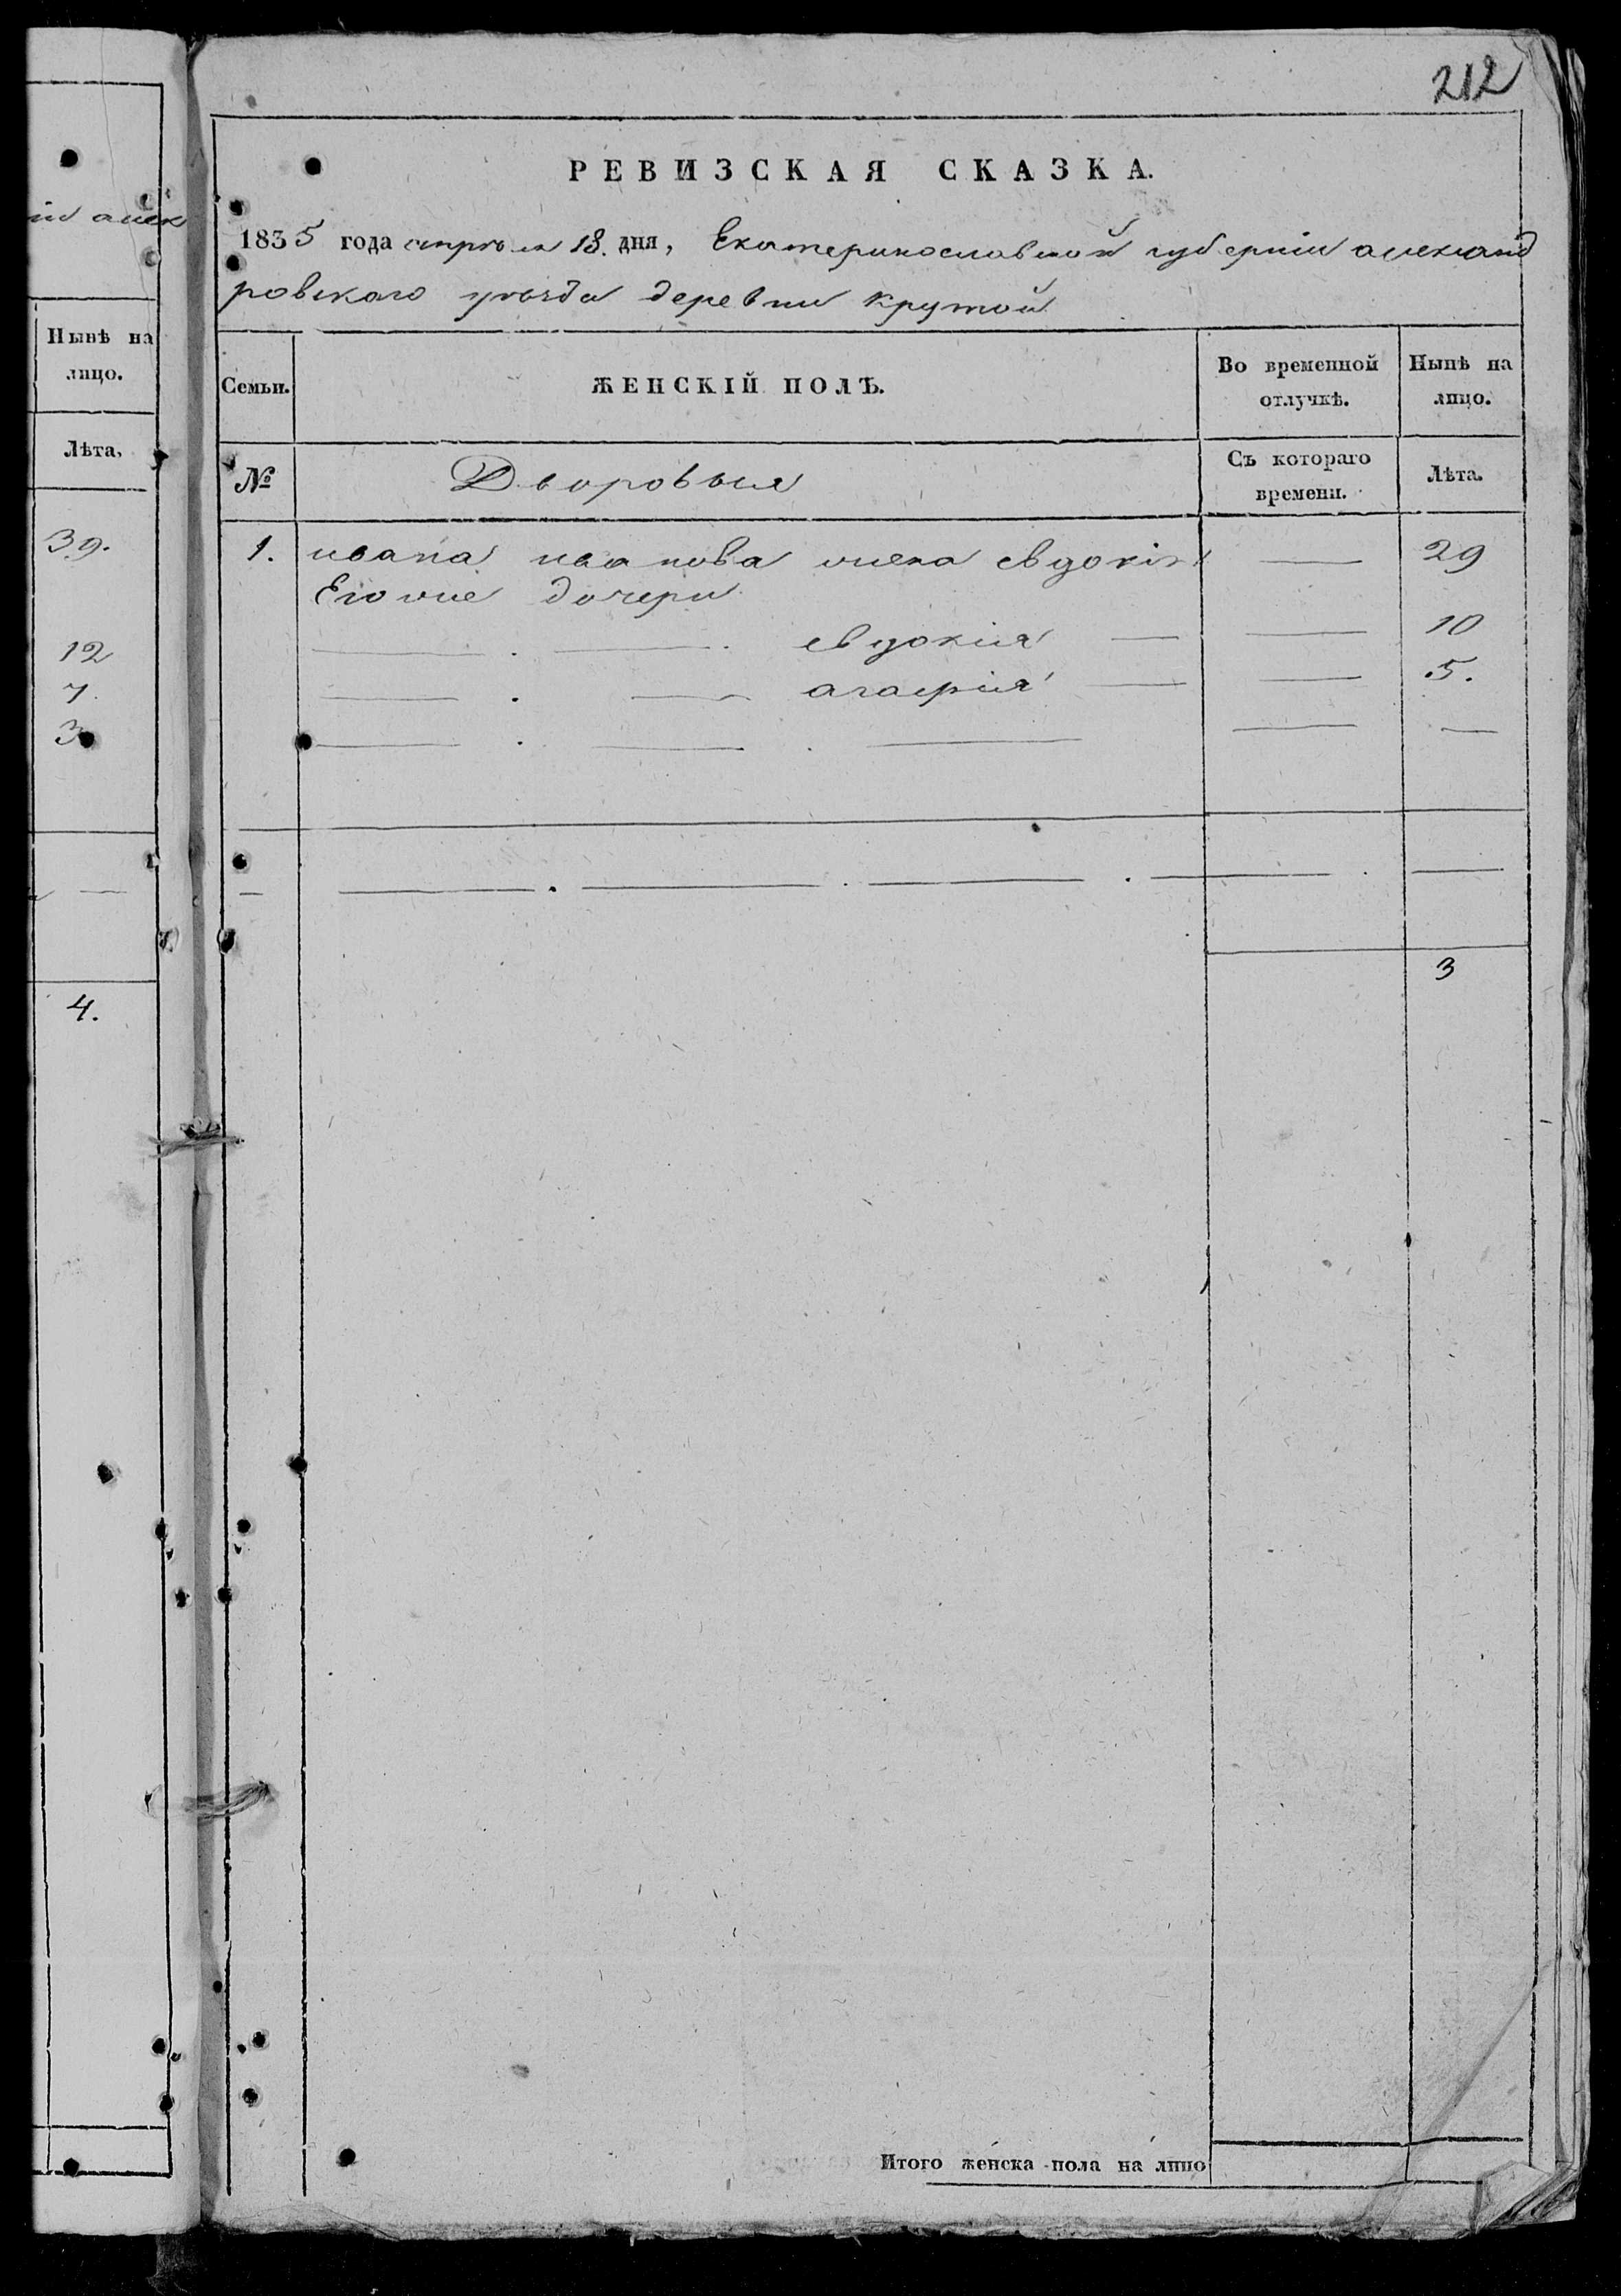 212
РЕВИЗСКАЯ СКАЗКА.
1835 года апреля 18. дня, Екатеринославской губерніи александ
ровскаго уѣзда деревни Крутой
Семьи.
ЖЕНСКІЙ ПОЛЪ.
Во временной отлучкѣ.
Нынѣ на лицо.
№
Дворовыя
Съ котораго времени.
Лѣта.
1. ивана иванова жена евдокія — 29
Егоже дочери
евдокия — — 10
агафия — — 5.
3
Итого женска пола на лицо
алек
Нынѣ на
лицо.
Лѣта,
39.
12
7.
3
4.